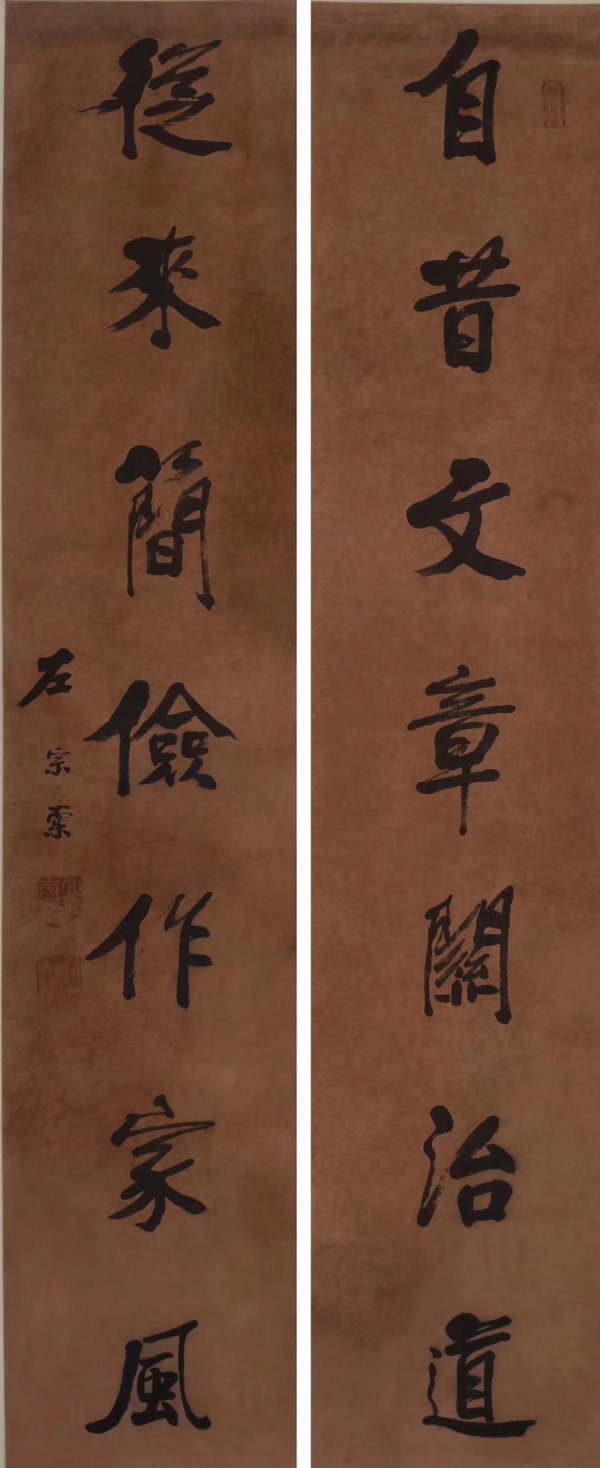 自昔文章關治道
從來簡儉作家風
左宗棠